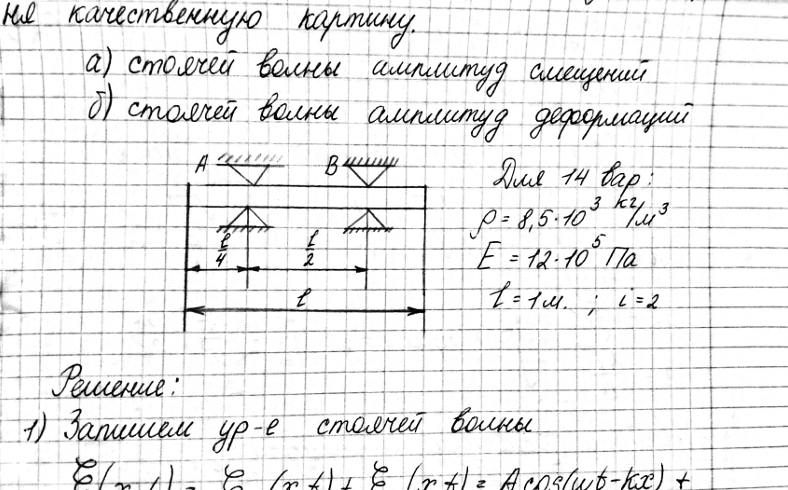 ня качественную картину.
а) стоячей волны амплитуд смещений
б) стоячей волны амплитуд деформаций
A B
Для 14 вар:
ρ = 8,5·10³ кг/м³
E = 12·10⁵ Па
l = 1м. ; i = 2
l/4 l/2
l
Решение:
1) Запишем ур-е стоячей волны
ξ(x,t) = ξ (x,t) + ξ (x,t) = A cos(ωt-kx) +